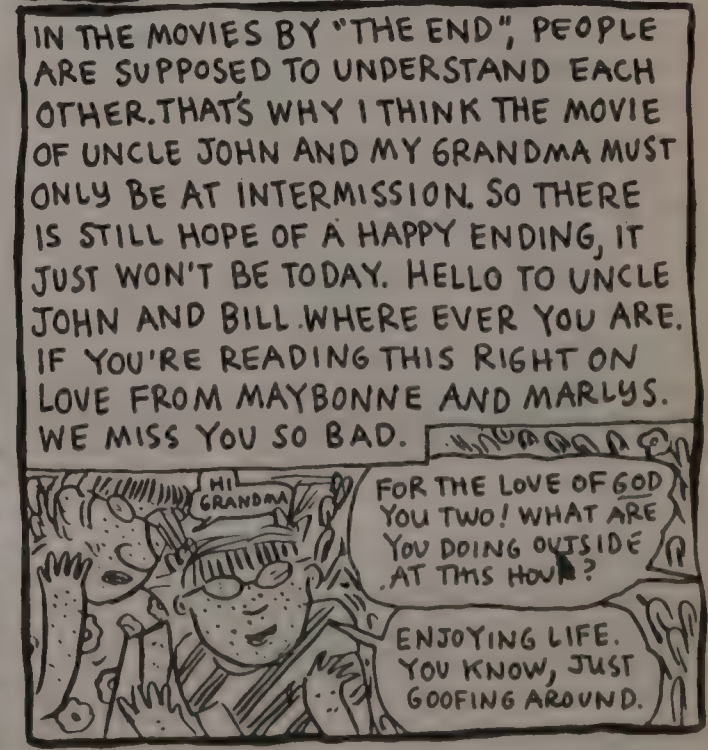 IN THE MOVIES BY "THE END", PEOPLE
ARE SUPPOSED TO UNDERSTAND EACH
OTHER. THAT'S WHY I THINK THE MOVIE
OF UNCLE JOHN AND MY GRANDMA MUST
ONLY BE AT INTERMISSION. SO THERE
IS STILL HOPE OF A HAPPY ENDING, IT
JUST WON'T BE TODAY. HELLO TO UNCLE
JOHN AND BILL. WHERE EVER YOU ARE.
IF YOU'RE READING THIS RIGHT ON
LOVE FROM MAYBONNE AND MARLYS.
WE MISS YOU SO BAD.
HI
GRANDMA
FOR THE LOVE OF GOD
YOU TWO! WHAT ARE
YOU DOING OUTSIDE
AT THIS HOUR?
ENJOYING LIFE.
YOU KNOW, JUST
GOOFING AROUND.